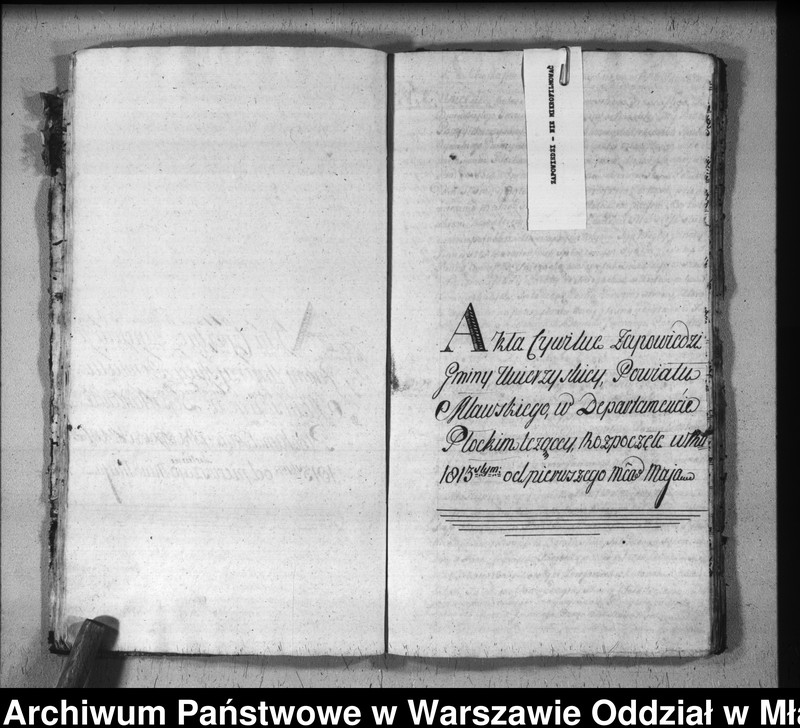 ZAPOWIEDZI - NIE MIKROFILMOWAĆ
Akta Cywilne Zapowiedzi
Gminy Unierzyskiey, Powiatu
Mławskiego, w Departamencie
Płockim leżącey, Rozpoczęte w Rku
1813stym od pierwszego Mca Maja
Archiwum Państwowe w Warszawie Oddział w Mła